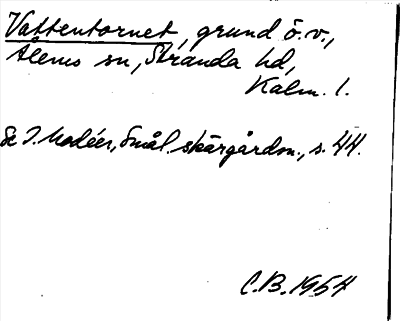 Vattentornet, grund ö.v.,
Ålems sn, Stranda hd,
Kalm. l.
Se I. Modéer, Smål. skärgårdsn., s. 44.
C.B. 1954